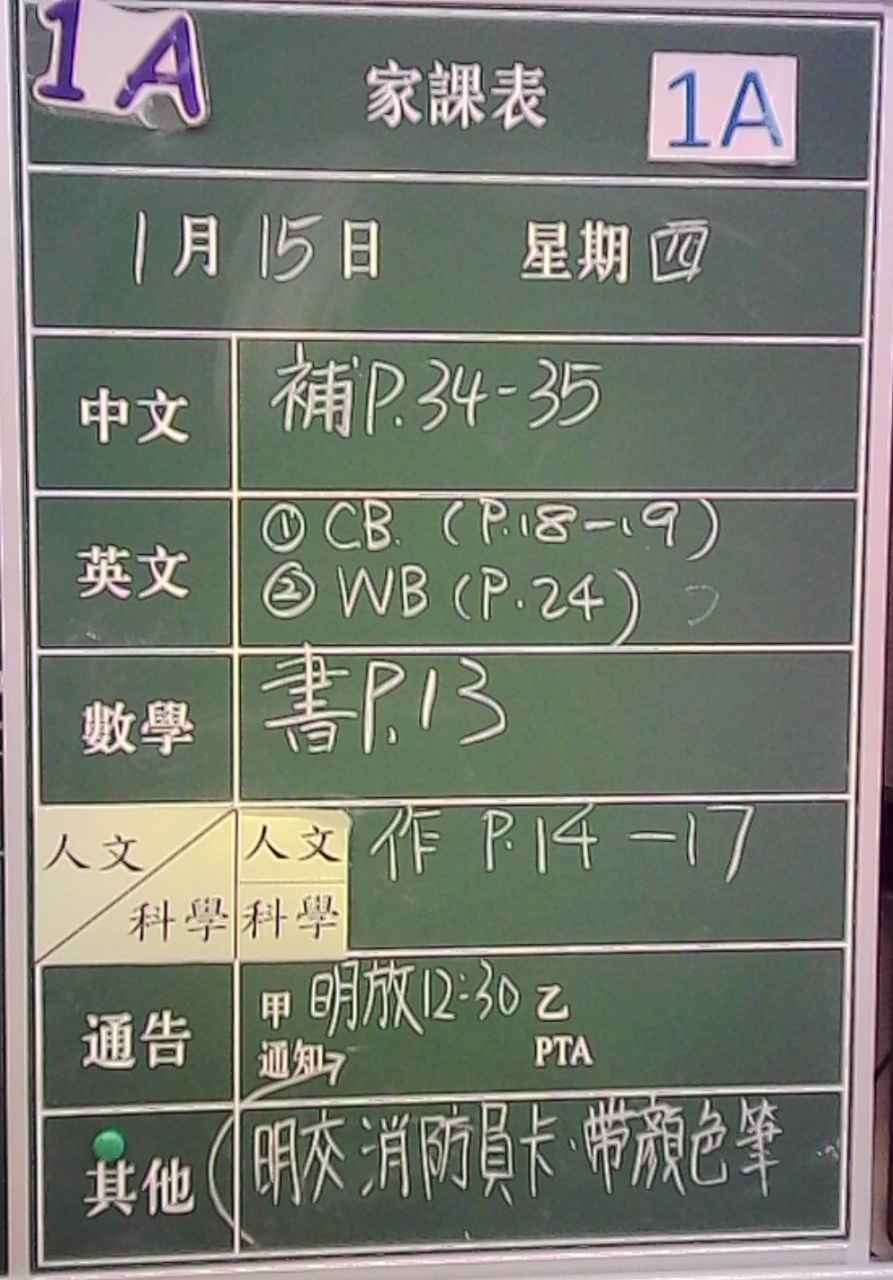 1A
家課表 1A
1月15日 星期四
中文 補P.34-35
英文 ① CB. (P.18-19)
② WB (P.24)
數學 書P.13
人文 科學 人文 作 P.14-17
科學
通告 甲 明放12:30 乙
通知 PTA
其他 明交消防員卡·帶顏色筆